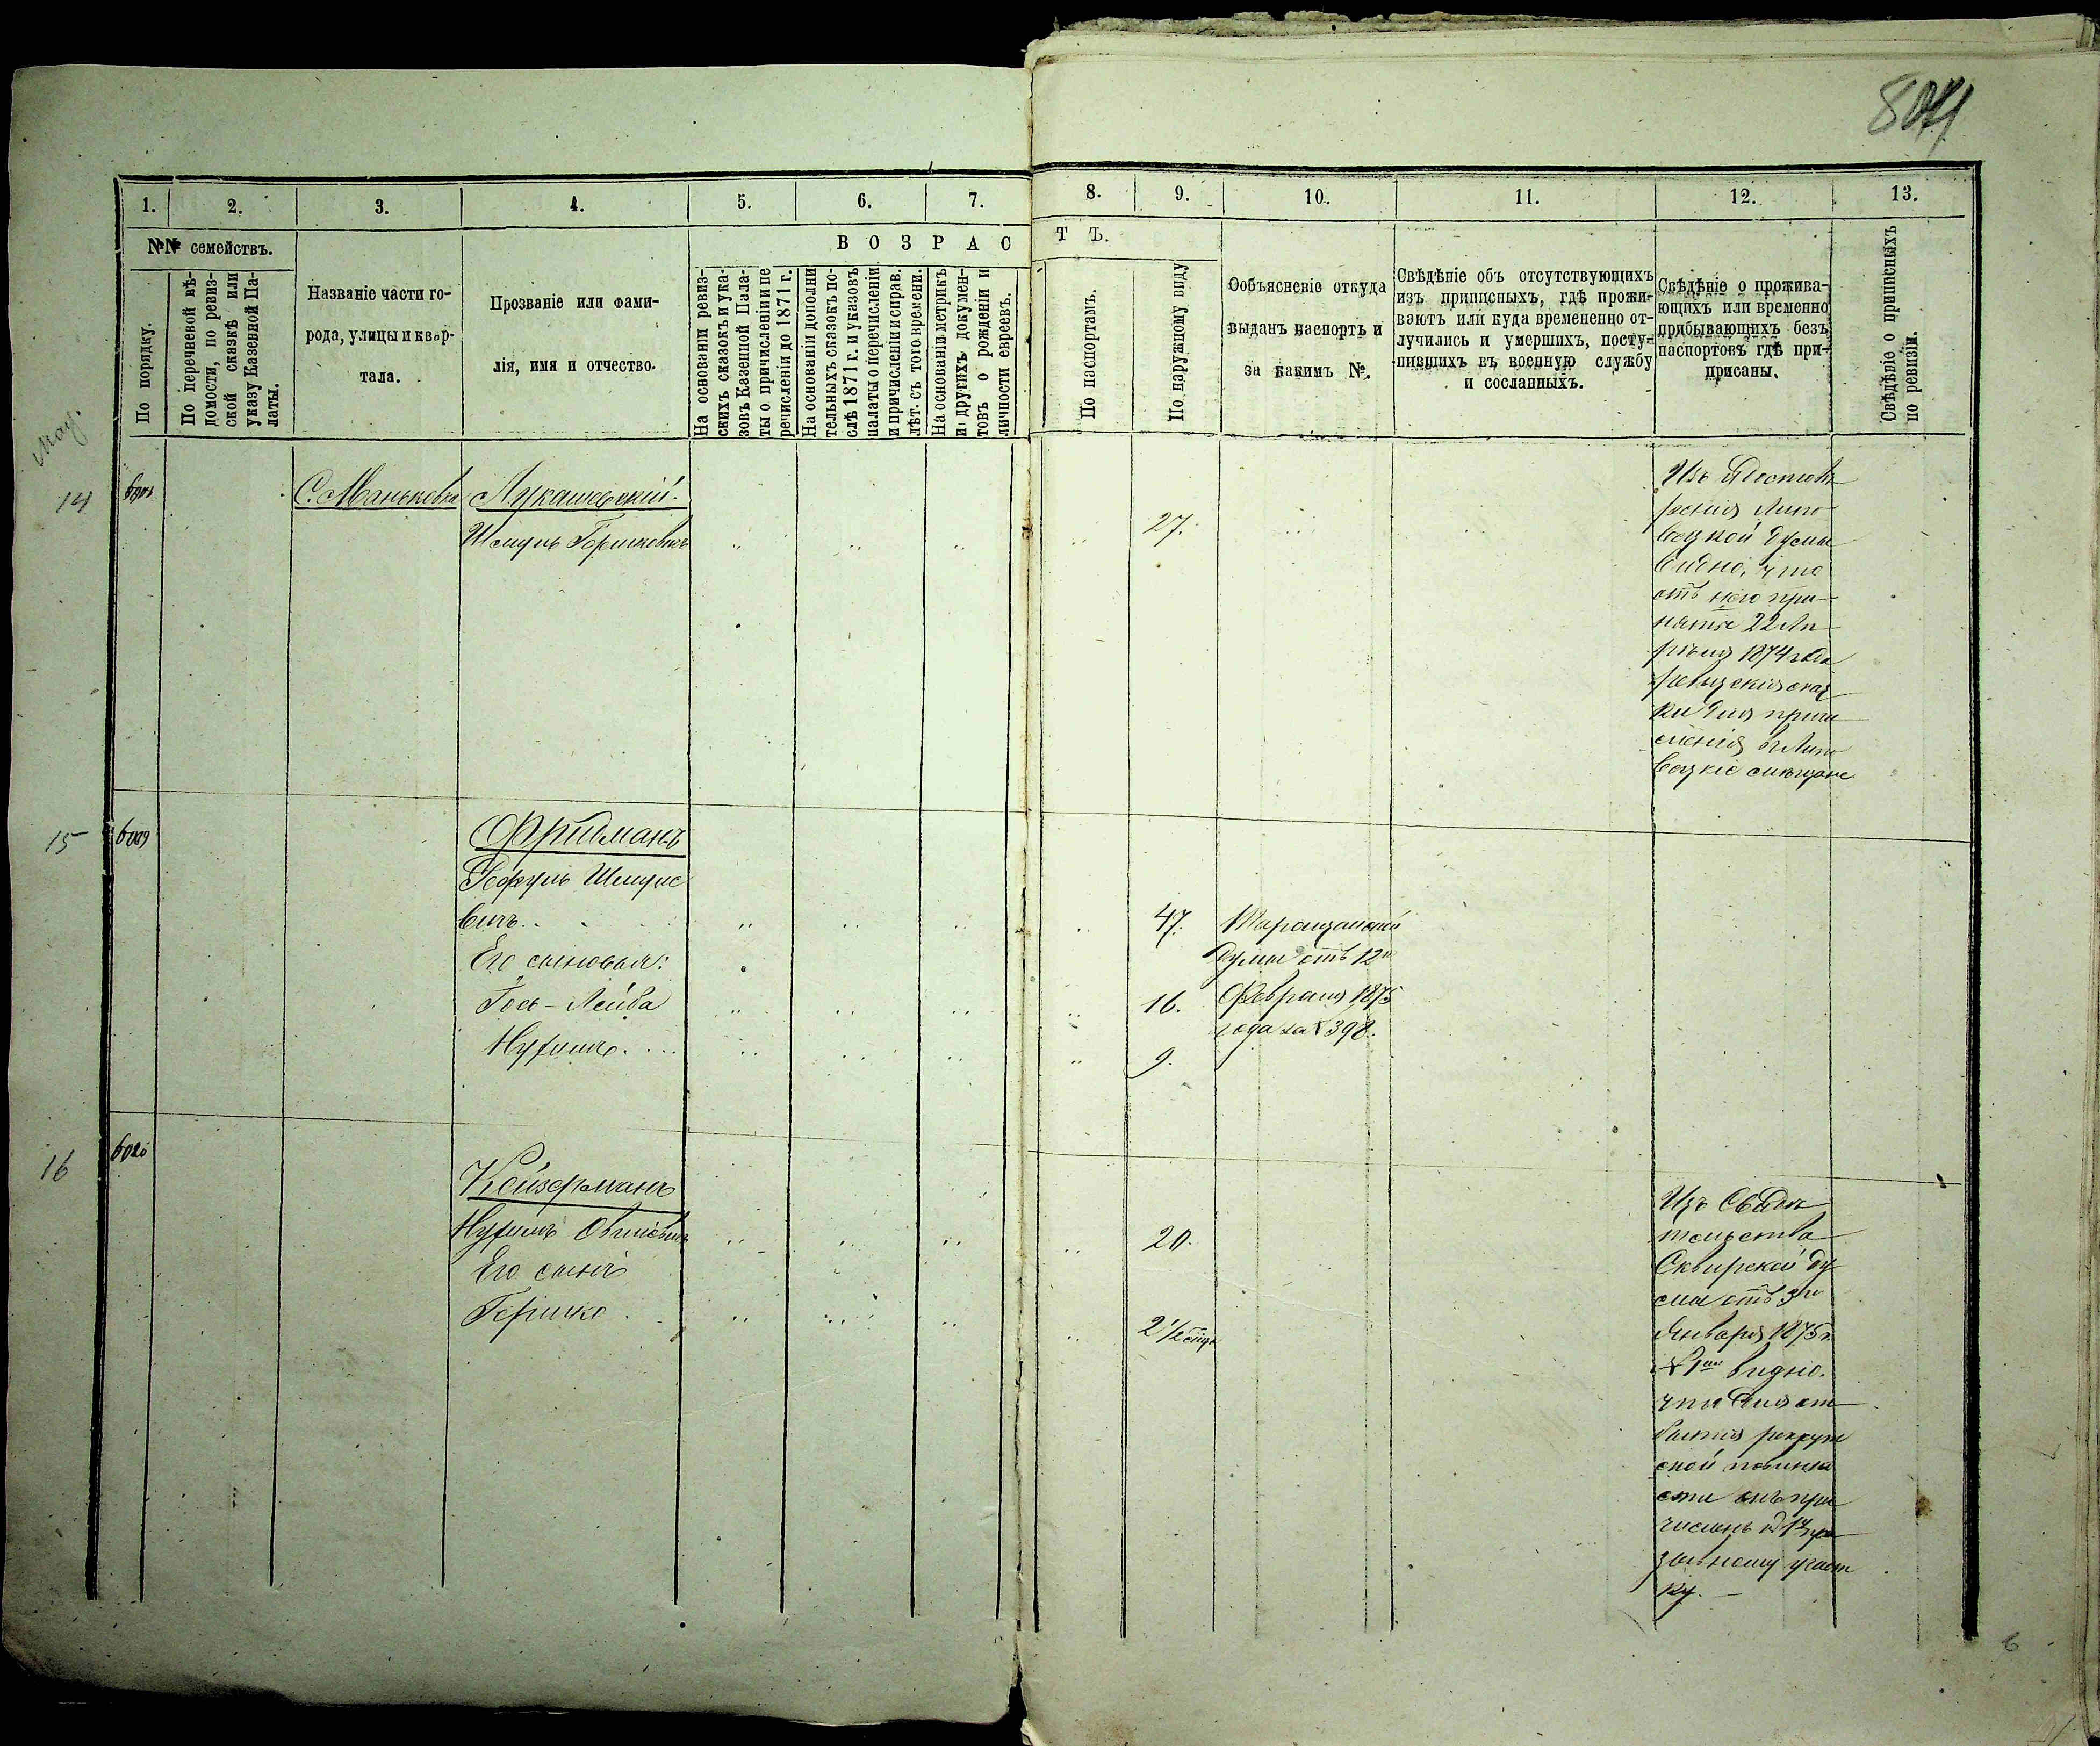 1. 2. 3. 4. 5. 6. 7. 8. 9. 10. 11. 12. 13.
№№ семействъ.
По порядку.
По перечневой вѣ-
домости, по ревиз-
ской сказкѣ или
указу Казенной Па-
латы.
Названіе части го-
рода, улицы и квар-
тала.
Прозваніе или фами-
лія, имя и отчество.
ВОЗРАСТЪ.
На основаніи ревиз-
скихъ сказокъ и ука-
зовъ Казенной Пала-
ты о причисленіи и пе
речисленіи до 1871 г.
На основаніи дополни
тельныхъ сказокъ по-
слѣ 1871 г. и указовъ
палаты о перечисленіи
и причисленіи и справ.
лѣт. съ того времени.
На основаніи метрикъ
и другихъ докумен-
товъ о рожденіи и
личности евреевъ.
По паспортамъ.
По наружному виду
Ообъясненіе откуда
выданъ паспортъ и
за какимъ №.
Свѣдѣніе объ отсутствующихъ
изъ приписныхъ, гдѣ прожи-
ваютъ или куда времененно от-
лучились и умершихъ, посту-
пившихъ въ военную службу
и сосланныхъ.
Свѣдѣніе о прожива-
ющихъ или временно
прдбывающихъ безъ
паспортовъ гдѣ при-
присаны.
Свѣдѣніе о приписныхъ
по ревизіи.
14
С. Маньковка
Лукашевскій.
Шмуль Гершковичъ
27.
Изъ удостовѣ-
ренія Липо-
вецкой Думы
видно, что
отъ него при-
няты 22 Ап-
рѣля 1874 года
ревизскія сказ
ки для причи
сленія въ Липо
вецкіе мѣщане
15
6009
Фридманъ
Шмуле
вичъ
47.
Таращанской
Думы отъ 12го
Его сыновья:
Іось-Лейба
16.
Февраля 1875
года за № 398.
Нухимъ
9.
16
Кейзерманъ
Нухимъ
20.
Его сынъ
Гершко
2 1/2
Изъ Свидѣ
тельства
Сквирской Ду
мы отъ 3го
Января 1875 г.
видно,
что для от
бытія рекрут
ской повинно
сти онъ при
численъ къ
зывному участ
ку.
6